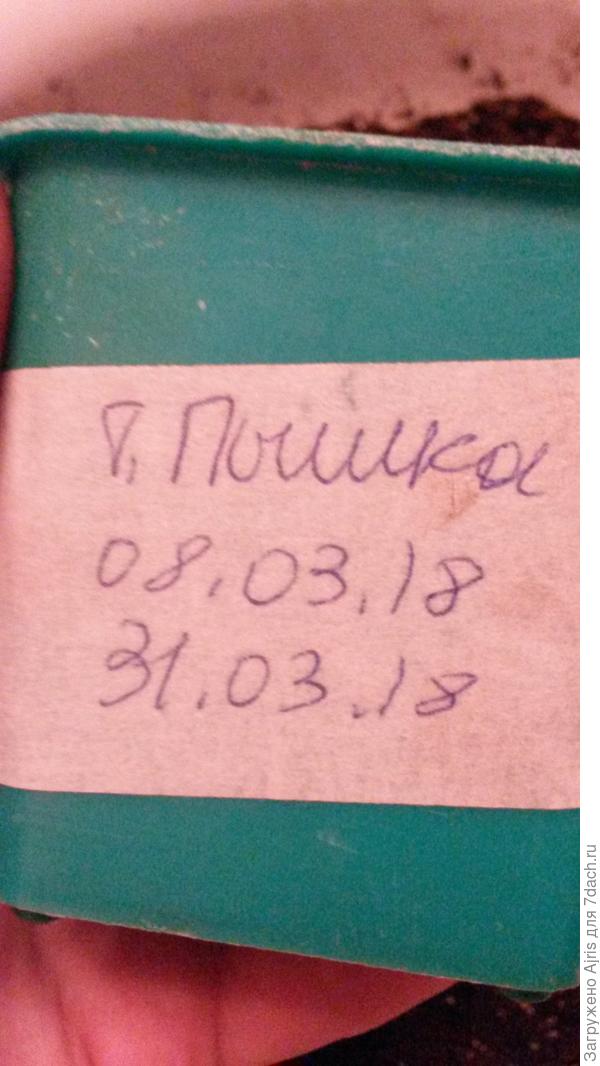 Т. Пышка
08.03.18
31.03.18
Загружено Ajris для 7dach.ru